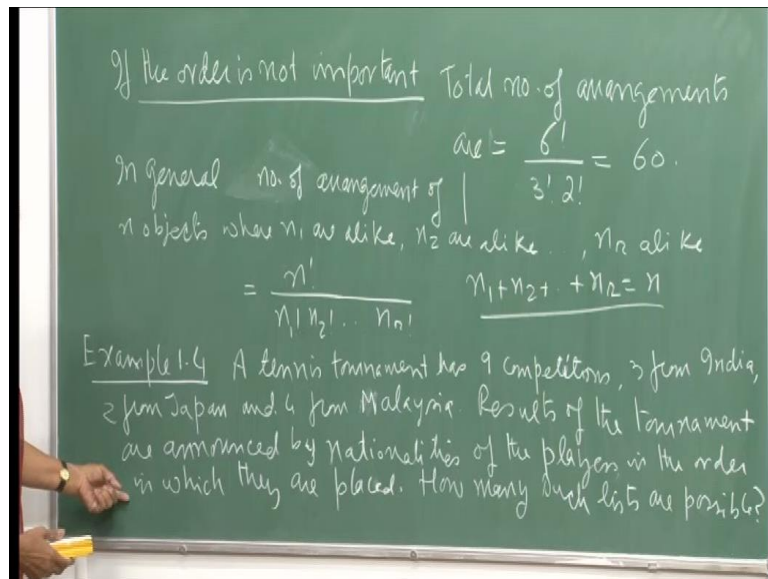 If the order is not important Total no. of arrangements
are = 6! / 3! 2! = 60.
In General no. of arrangement of
n objects where n₁ are alike, n₂ are alike ..., nᵣ alike
= n! / n₁! n₂! ... nᵣ! n₁+n₂+..+nᵣ = n
Example 1.4 A tennis tournament has 9 competitors, 3 from India,
2 from Japan and 4 from Malaysia. Results of the tournament
are announced by nationalities of the players in the order
in which they are placed. How many such lists are possible?